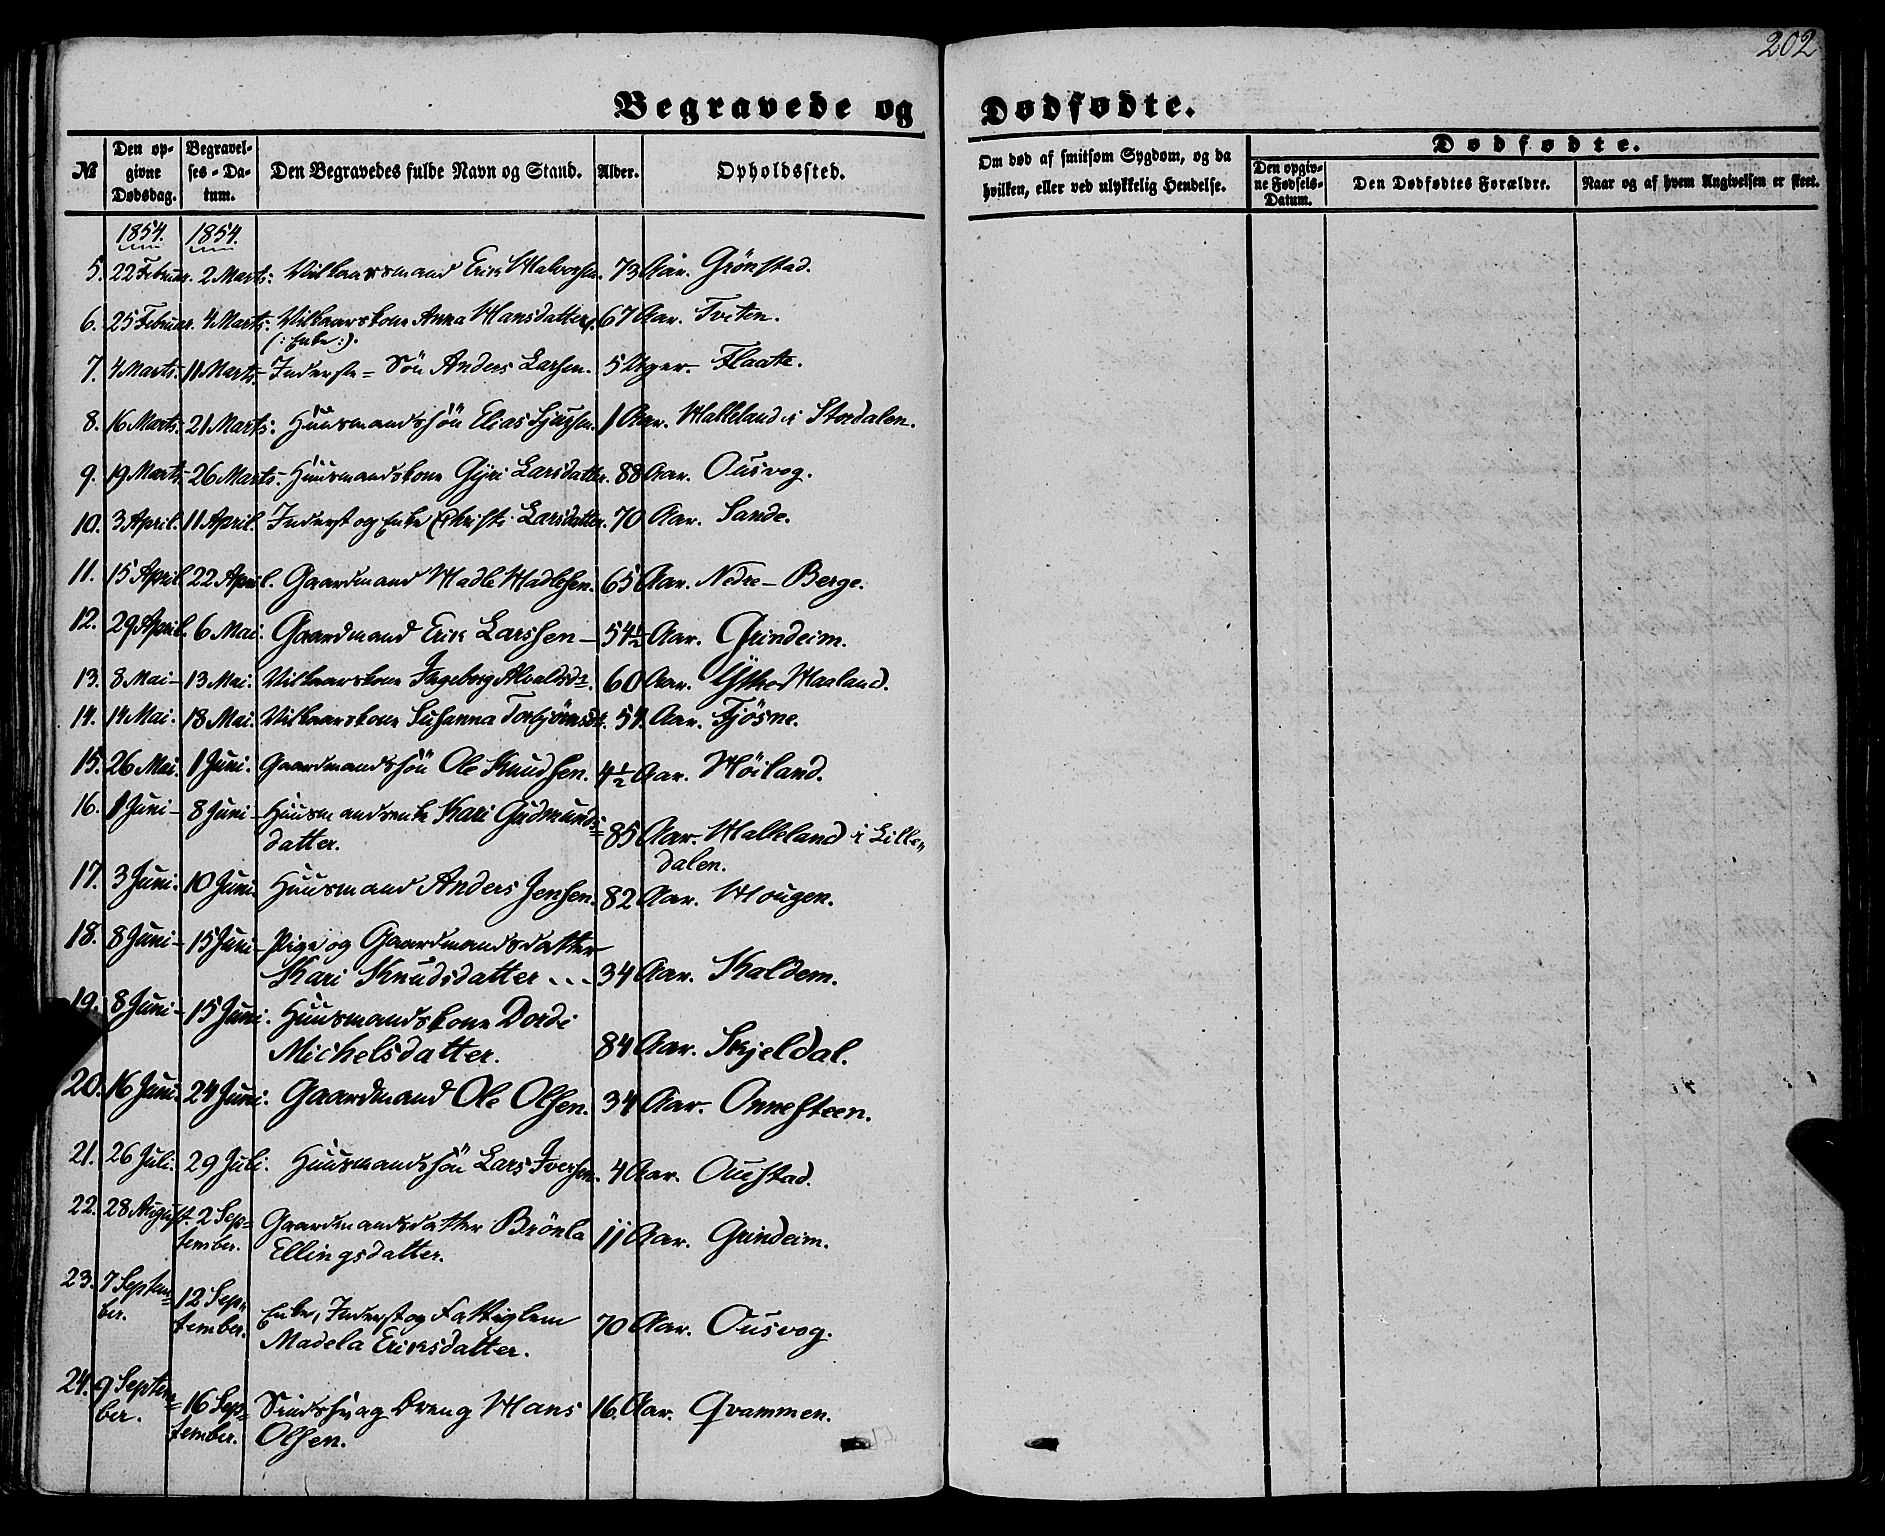 202
Begravede og Dødfødte.
№
Den opgivne Dødsdag.
Begravelses-Datum.
Den Begravedes fulde Navn og Stand.
Alder.
Opholdssted.
Om død af smitsom Sygdom, og da hvilken, eller ved ulykkelig Hendelse.
Dødfødte.
Den opgivne Fødsels-Datum.
Den Dødfødtes Forældre.
Naar og af hvem Angivelsen er skeet.
1854. 1854.
5. 22 Februar. 2 Marts: Vilkaarsmand Erik Halvorsen. 73 Aar. Grönstad.
6. 25 Februar. 4 Marts: Vilkaarskone Anna Hansdatter. 67 Aar. Tviten.
(: Enke :).
7. 4 Marts. 11 Marts- Inderste= Sön Anders Larsen. 5 Uger. Flaate.
8. 16 Marts- 21 Marts: Huusmandssön Elias 1 Aar. Halleland i Stordalen.
9. 19 Marts- 26 Marts- Huusmandskone Gyri Larsdatter. 88 Aar. Ousvog.
10. 3 April. 11 April. Inderst og Enke Christi Larsdatter. 70 Aar. Sande.
11. 15 April 22 April. Gaardmand Hadle Hadlesen. 65 Aar. Nedre- Berge.
12. 29 April. 6 Mai. Gaardmand Erik Larssen- 54½ Aar. Grindeim.
13. 8 Mai- 13 Mai. Vilkaarskone Ingeborg 60 Aar. Ytre Haaland.
14. 14 Mai. 18 Mai. Vilkaarskone Susanna Torbjörnsdr. 54 Aar. Fjösne.
15. 26 Mai. 1 Juni. Gaardmandssön Ole Knudsen. 4½ Aar. Höiland.
16. 1 Juni- 8 Juni- Huusmandsenke Kari Gudmunds=
datter. 85 Aar. Halleland i Lille„
dalen.
17. 3 Juni. 10 Juni. Huusmand Anders Jensen. 82 Aar. Hougen.
18. 8 Juni- 15 Juni- Pige og Gaardmandsdatter
Kari Knudsdatter - - - 34 Aar. Kaldem.
19. 8 Juni- 15 Juni. Huusmandskone Dordi
Michelsdatter. 84 Aar. Skjeldal.
20. 16 Juni. 24 Juni. Gaardmand Ole Olsen. 34 Aar. Onnesteen.
21. 26 Juli. 29 Juli. Huusmandssön Lars Iversen. 4 Aar. Oustad.
22. 28 August. 2 Sep=
tember. Gaardmandsdatter Brönla
Ellingsdatter. 11 Aar. Grindeim.
23. 7 Septem=
ber. 12 Sep„
tember. Enke, Inderst og Fattiglem
Madela Eriksdatter. 70 Aar. Ousvog.
24. 9 Septem=
ber. 16 Sep=
tember. Sindssvag Dreng Hans
Olsen. 16. Aar. Qvammen.